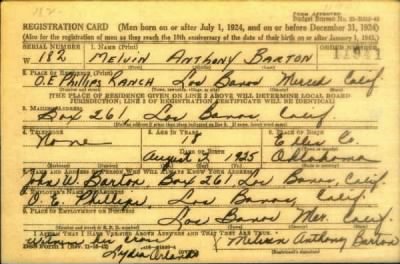 182
FORM APPROVED
REGISTRATION CARD (Men born on or after July 1, 1924, and on or before December 31, 1924)
(Also for the registration of men as they reach the 18th anniversary of the date of their birth on or after January 1, 1943.)
SERIAL NUMBER 1. NAME (Print)
W 182 MELVIN ANTHONY BARTON
2. PLACE OF RESIDENCE (Print)
O.E. Phillips RANCH Los Banos Merced Calif.
[THE PLACE OF RESIDENCE GIVEN ON LINE 2 ABOVE WILL DETERMINE LOCAL BOARD
JURISDICTION; LINE 2 OF REGISTRATION CERTIFICATE WILL BE IDENTICAL]
3. MAILING ADDRESS
Box 261, Los Banos, Calif.
4. TELEPHONE 5. AGE IN YEARS 6. PLACE OF BIRTH
None 18 Co.
August 2 1925 Oklahoma
7. NAME AND ADDRESS OF PERSON WHO WILL ALWAYS KNOW YOUR ADDRESS
John W. Barton, Box 261, Los Banos, Calif.
8. EMPLOYER'S NAME AND ADDRESS
O. E. Phillips, Los Banos, Calif.
9. PLACE OF EMPLOYMENT OR BUSINESS
Los Banos Mer. Calif.
I AFFIRM THAT I HAVE VERIFIED ABOVE ANSWERS AND THAT THEY ARE TRUE.
DSS Form 1
Lydia
Melvin Anthony Barton